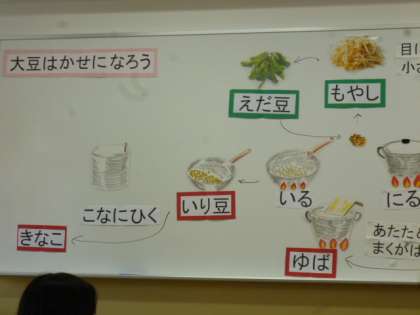 大豆はかせになろう
えだ豆
もやし
目に
小さ
こなにひく
いり豆
いる
にる
きなこ
ゆば
あたため
まくがは